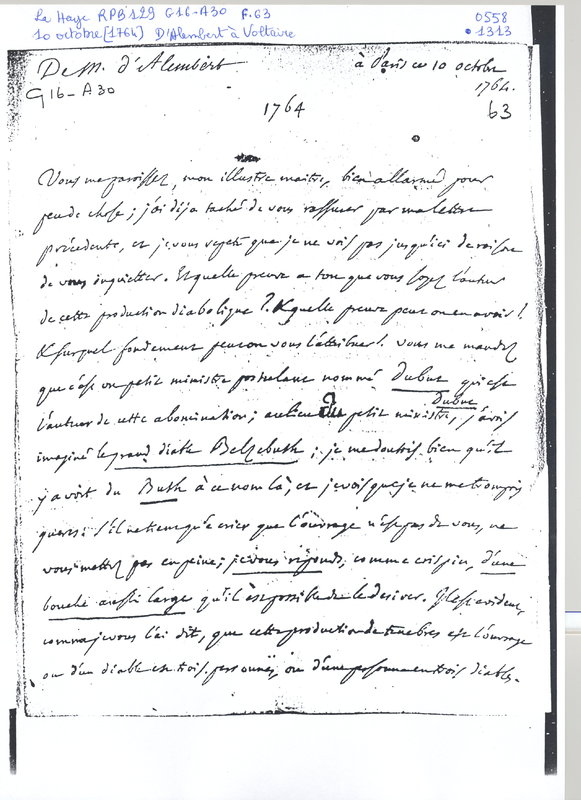 La Haye RPB 129 G16-A30 F.63
10 octobre [1764] D'Alembert à Voltaire
0558
1313
De M. d'Alembert
à Paris ce 10 octobre
1764.
G16-A30
1764
63
Vous me paroissez, mon illustre maitre, bien allarmé pour
peu de chose; j'ai deja taché de vous rassurer par ma lettre
précédente, et je vous repete que je ne vois pas jusqu'ici de raison
de vous inquietter. Et quelle preuve a t'on que vous soyez l'auteur
de cette production diabolique? & quelle preuve peut on en avoir?
& sur quel fondement peut on vous l'attribuer? vous me mandez
que c'est un petit ministre postulant nommé Dubut qui est
Dubut
l'auteur de cette abomination; au lieu du petit ministre, j'avois
imaginé le grand diable Belzebuth; je me doutois bien qu'il
y avoit du Buth à ce nom là, et je vois que je ne me trompois
gueres: s'il ne tient qu'à crier que l'ouvrage n'est pas de vous, ne
vous mettez pas en peine; je vous reponds, comme crispin, d'une
bouche aussi large qu'il est possible de le desirer. Il est evident,
comme je vous l'ai dit, que cette production de tenebres est l'ouvrage
ou d'un diable en trois personnes, ou d'une personne en trois diables.